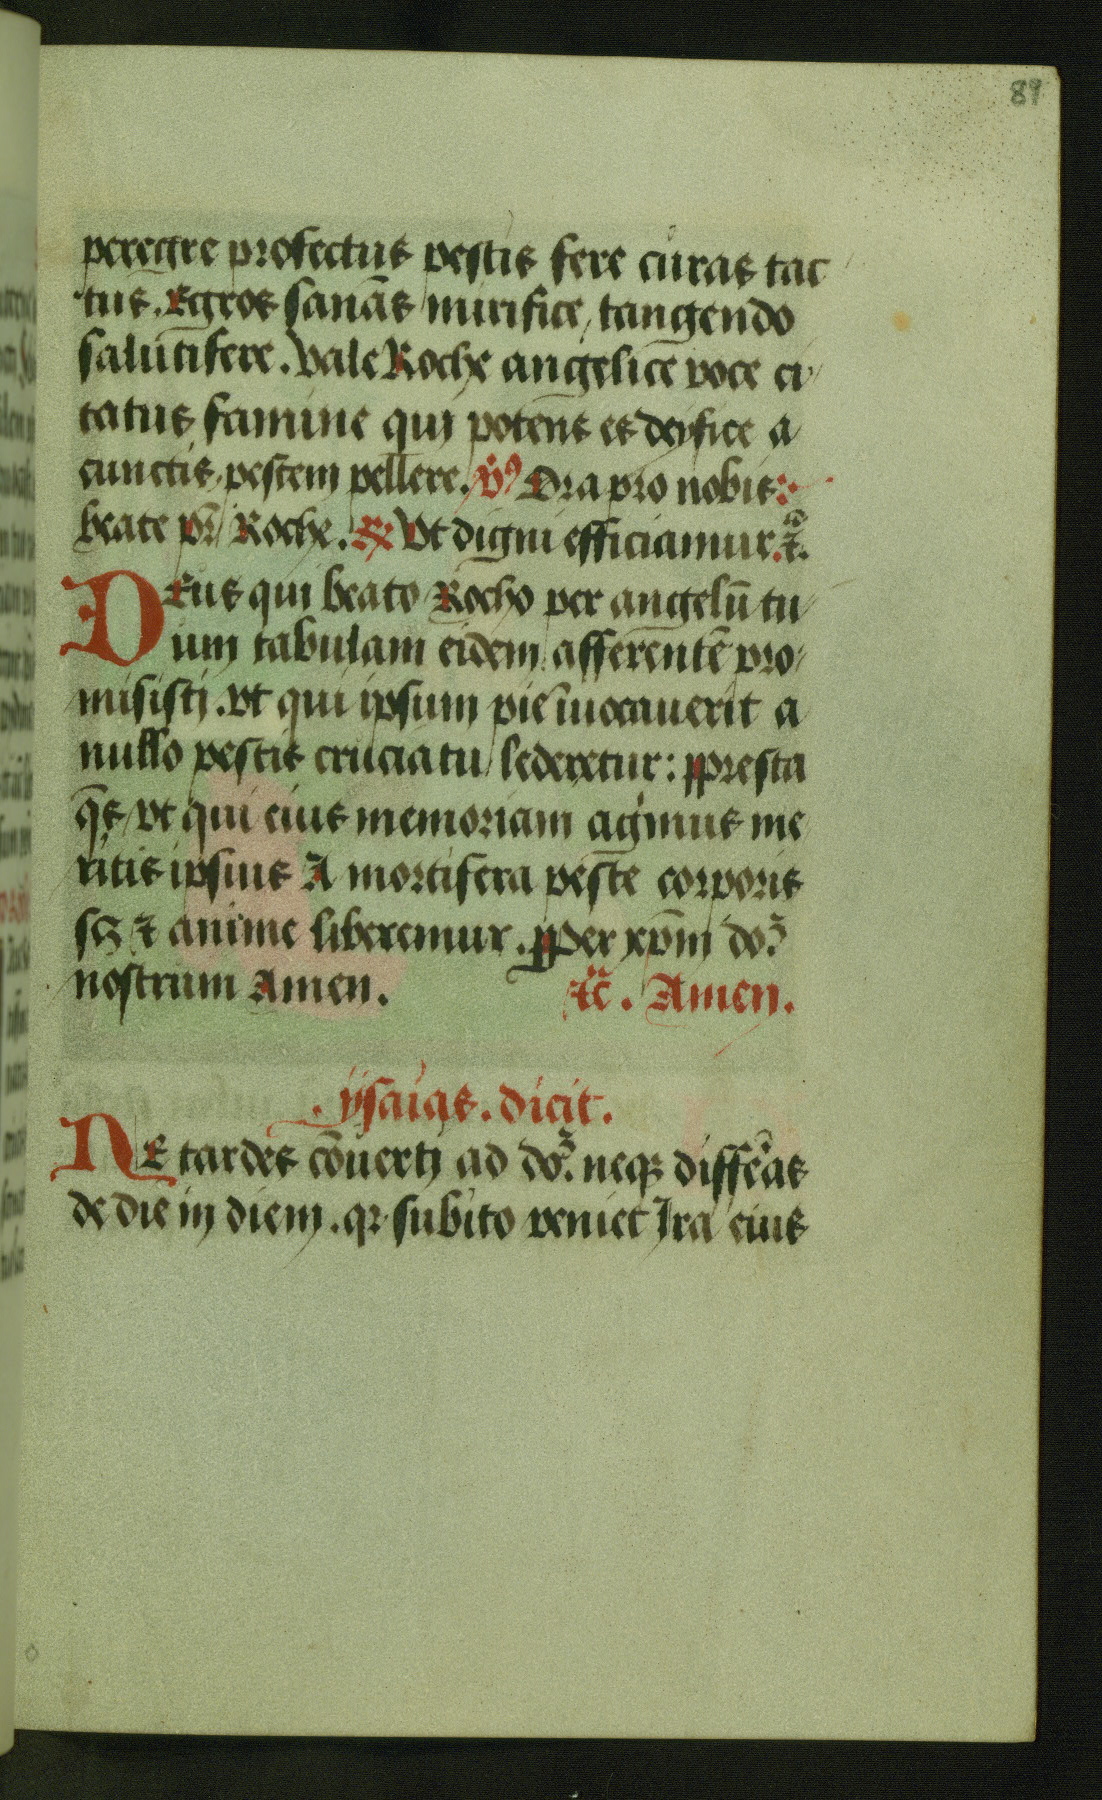 89
peregre profectus pestis fere curas tac
tus. Egros sanās mirifice, tangendo
salutifere. Vale Roche angelice voce ci
tatus famine qui potens es deyfice a
cunctis pestem pellere. V̊9 Ora pro nobis:
beate pr̄ Roche. ℟ Vt digni efficiamur. ⁊c̃.
Deus qui beato Rocho per angelū tu
um tabulam eidem afferentē pro
misisti. vt qui ipsum pie īuocauerit a
nullo pestis cruciatu lederetur: presta
q̄s vt qui eius memoriam agimus me
ritis ipsius A mortifera peste corporis
scȝ ⁊ anime liberemur. Per xp̄m do.̃
nostrum Amen. ⁊c̄. Amen.
. ysaias. dicit.
Ne tardes cōuerti ad do.̃ neqꝫ differas
de die in diem. qꝛ subito veniet Ira eius